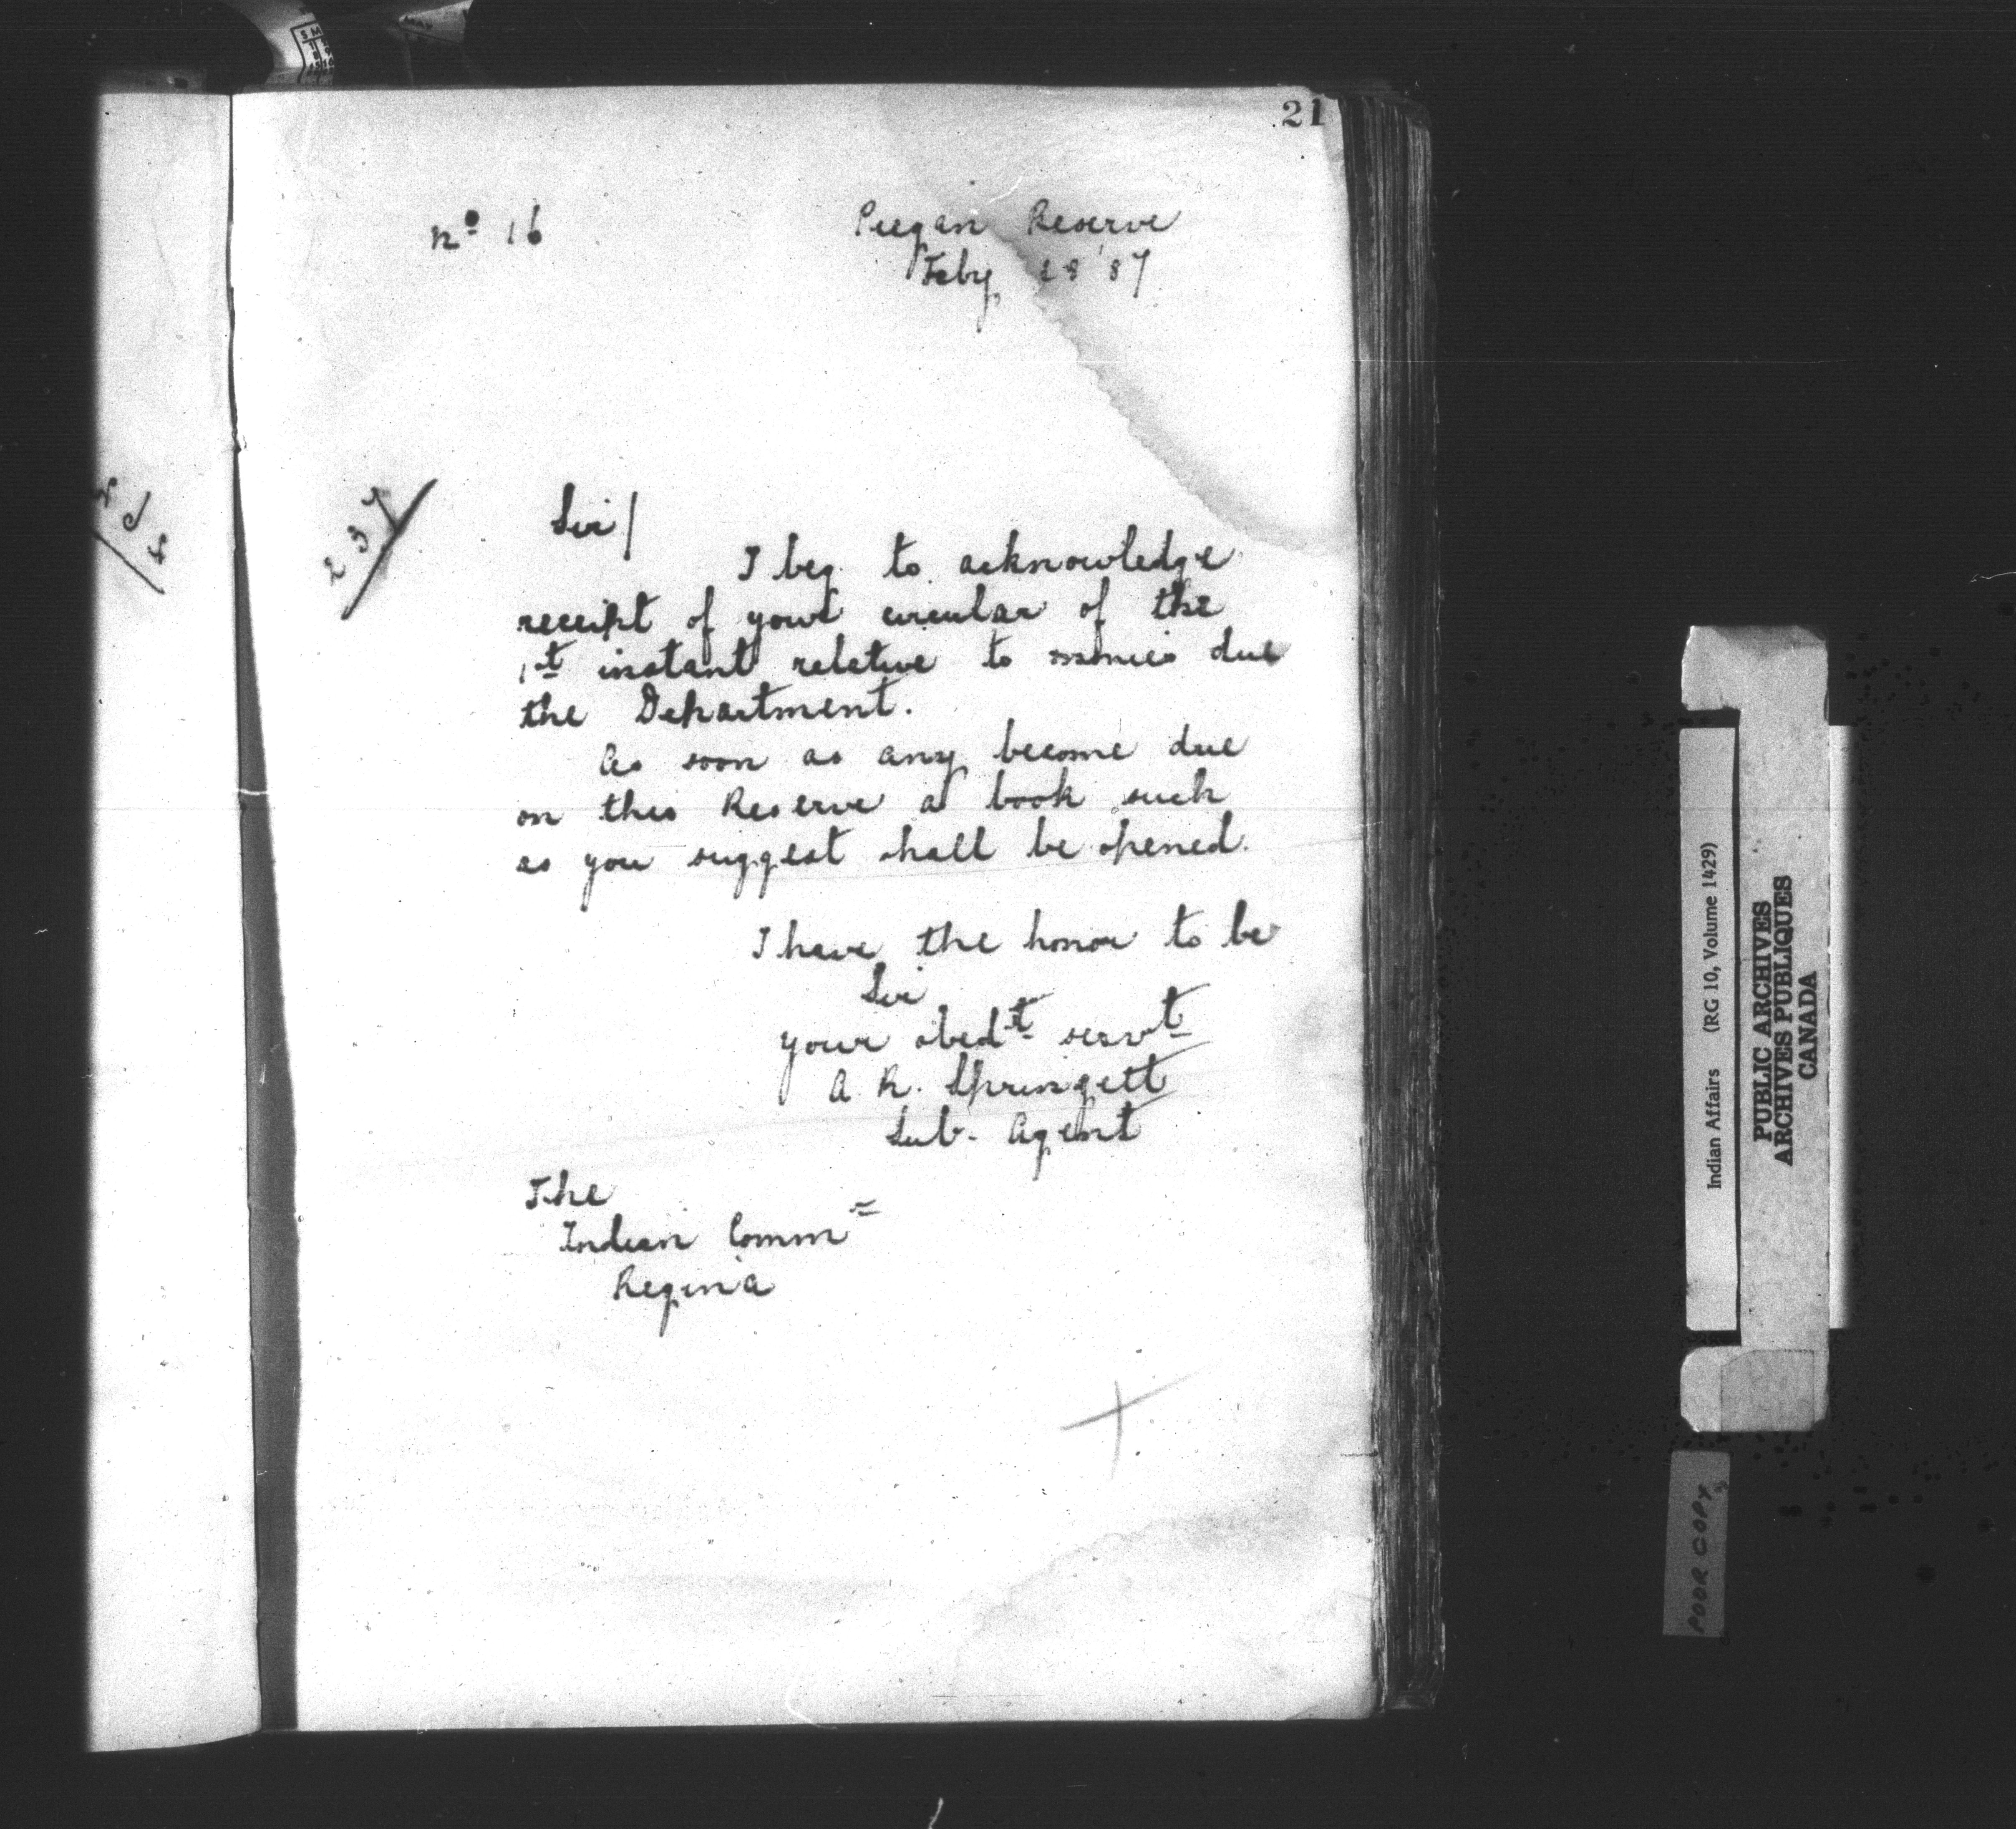 21
No 16
Peegan Reserve
Feby 28 '87
237
Sir/
I beg to acknowledge
receipt of your circular of the
1st instant relative to monies due
the Department.
As soon as any become due
on this Reserve a book such
as you suggest shall be opened.
I have the honor to be
Sir
your obedt servt
A. R. Springett
Sub. Agent
The
Indian Comm
Regina
Indian Affairs (RG 10, Volume 1429)
PUBLIC ARCHIVES
ARCHIVES PUBLIQUES
CANADA
POOR COPY